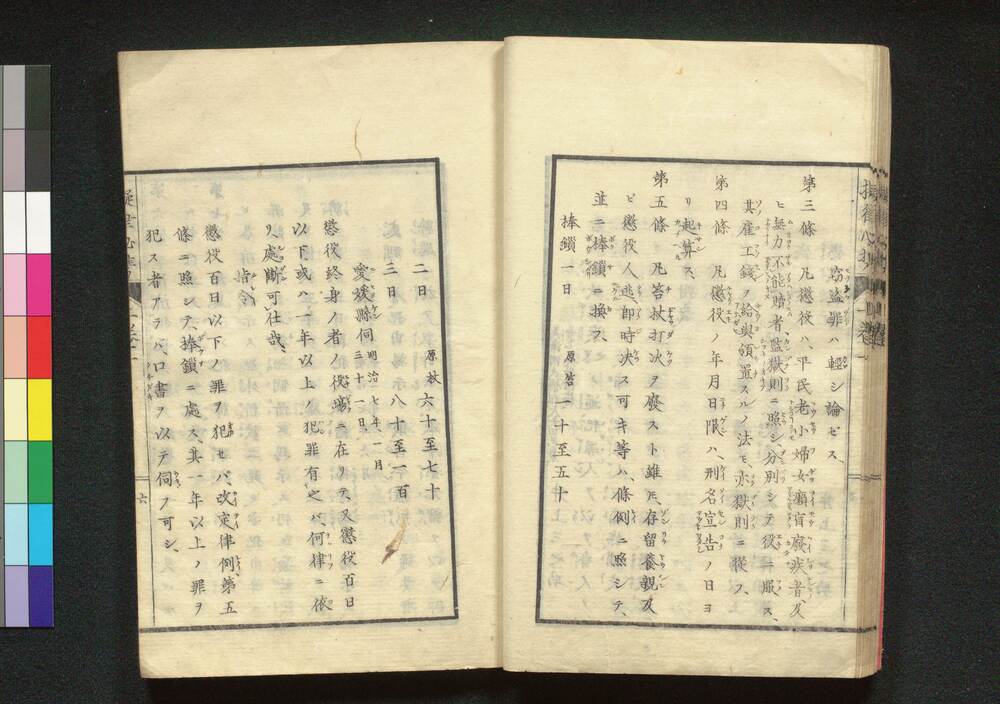 窃盜罪ハ輕シ論セス、
第三條 凡懲役ハ、平民老小婦女癩盲廢疾者、及
ヒ無力不能贖者、監獄則ニ照シ、分別シテ役ニ服ス、
其雇工錢ヲ給與領置スルノ法モ、亦獄則ニ從フ、
第四條 凡懲役ノ年月日限ハ、刑名宣告ノ日ヨ
リ起算ス、
第五條 凡笞杖打决ヲ廢スト雖𪜈、存留養親及
ヒ懲役人逃、即時决ス可キ等ハ、條例ニ照シテ、
並ニ棒鎖ニ換ス、
棒鎖一日 原笞 一十至五十
二日 原杖 六十至七十
三日 八十至一百
愛媛縣伺 明治七年 月三十一日、
懲役終身ノ者ノ役塲ニ在リテ、又懲役百日
以下或ハ一年以上ノ犯罪有之ハ、何律ニ依
リ處斷可仕哉、
指令
懲役百日以下ノ罪ヲ犯セハ、改定律例第五
條ニ照シテ、捧鎖ニ處ス、其一年以上ノ罪ヲ
犯ス者アラハ、口書ヲ以テ伺フ可シ、
六